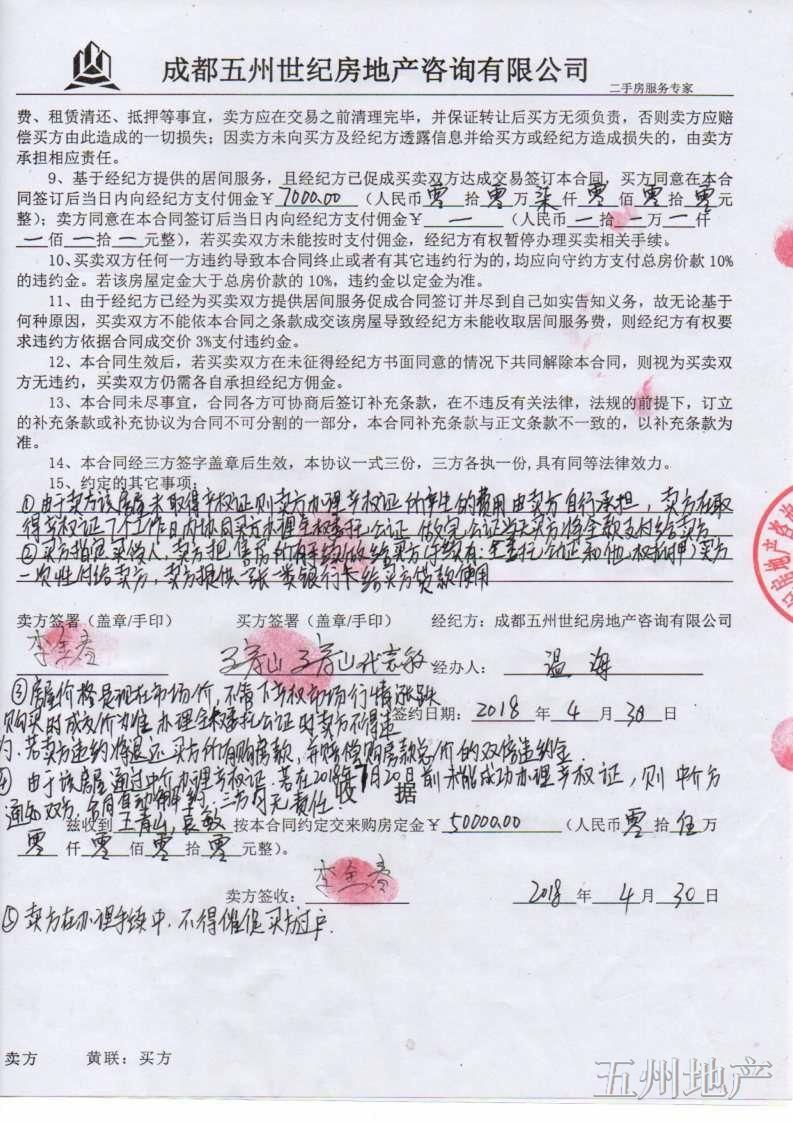 成都五州世纪房地产咨询有限公司
二手房服务专家
费、租赁清还、抵押等事宜，卖方应在交易之前清理完毕，并保证转让后买方无须负责，否则卖方应赔
偿买方由此造成的一切损失；因卖方未向买方及经纪方透露信息并给买方或经纪方造成损失的，由卖方
承担相应责任。
9、基于经纪方提供的居间服务，且经纪方已促成买卖双方达成交易签订本合同，买方同意在本合
同签订后当日内向经纪方支付佣金￥7000.00（人民币零拾零万柒仟零佰零拾零元
整）；卖方同意在本合同签订后当日内向经纪方支付佣金￥一（人民币一拾一万一仟
一佰一拾一元整），若买卖双方未能按时支付佣金，经纪方有权暂停办理买卖相关手续。
10、买卖双方任何一方违约导致本合同终止或者有其它违约行为的，均应向守约方支付总房价款 10%
的违约金。若该房屋定金大于总房价款的 10%，违约金以定金为准。
11、由于经纪方已经为买卖双方提供居间服务促成合同签订并尽到自己如实告知义务，故无论基于
何种原因，买卖双方不能依本合同之条款成交该房屋导致经纪方未能收取居间服务费，则经纪方有权要
求违约方依据合同成交价 3%支付违约金。
12、本合同生效后，若买卖双方在未征得经纪方书面同意的情况下共同解除本合同，则视为买卖双
方无违约，买卖双方仍需各自承担经纪方佣金。
13、本合同未尽事宜，合同各方可协商后签订补充条款，在不违反有关法律，法规的前提下，订立
的补充条款或补充协议为合同不可分割的一部分，本合同补充条款与正文条款不一致的，以补充条款为
准。
14、本合同经三方签字盖章后生效，本协议一式三份，三方各执一份,具有同等法律效力。
15、约定的其它事项：
①由于卖方该房屋未取得产权证则卖方办理产权证所产生的费用由卖方自行承担，卖方在取
得产权证7个工作日内协同买方办理全权委托公证 做完公证当天买方将全款支付给卖方
②买方指定买受人，卖方把售房所有手续收给买方（手续有：全委托公证和他权抵押）买方
一次性付给卖方，卖方提供一张一类银行卡给买方贷款使用
卖方签署（盖章/手印） 买方签署（盖章/手印） 经纪方：成都五州世纪房地产咨询有限公司
王青山 王青山代袁敏 经办人： 温海
③房屋价格是现在市场价，不管下产权市场行情涨跌
购买时成交价为准 办理全权委托公证时卖方不得违 签约日期：2018 年 4 月 30 日
约．若卖方违约将退还买方所有购房款，并赔偿购房款总价的双倍违约金
④由于该房屋通过中介办理产权证．若在2018年7月20日前未能成功办理产权证，则中介方
通知双方，合同自动解约，三方均无责任．
收 据
兹收到 王青山，袁敏 按本合同约定交来购房定金￥50000.00（人民币零拾伍万
零仟零佰零拾零元整）。
卖方签收： 2018 年 4 月 30 日
⑤卖方在办理手续中．不得催促买方过户．
卖方 黄联：买方
五州地产